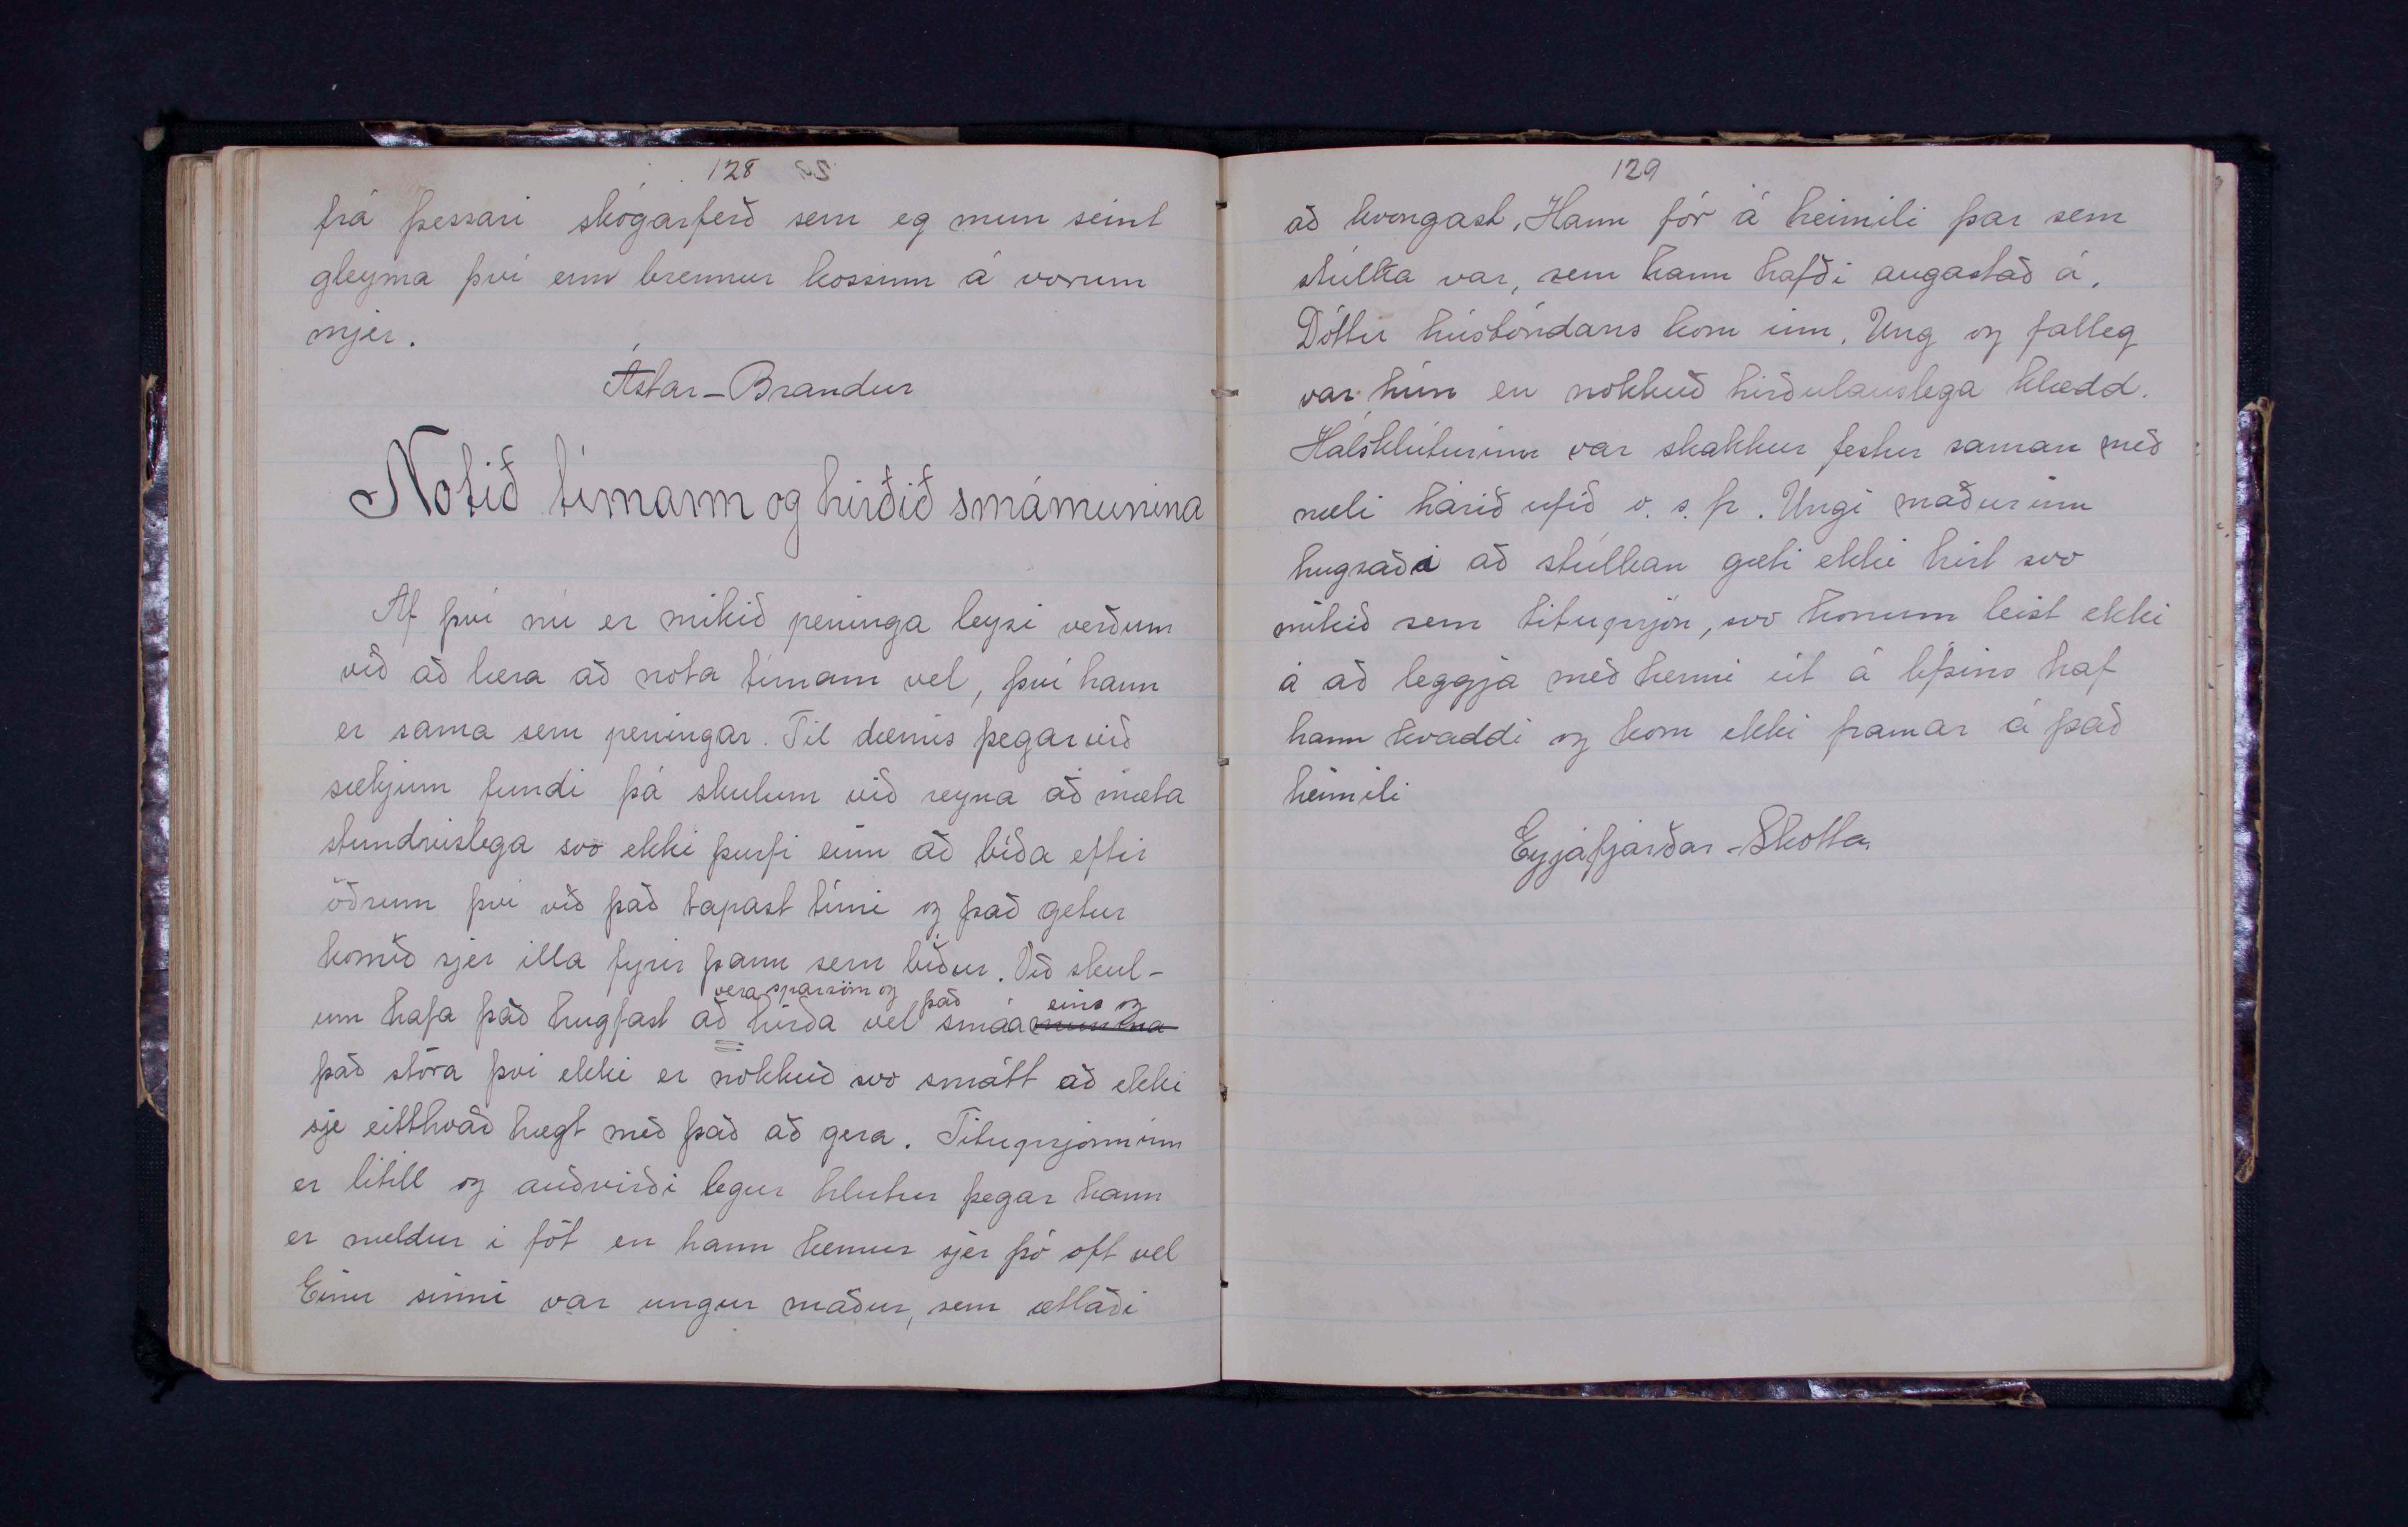 128
frá þessari skógarferð sem eg mun seint
gleyma því enn brennur kossinn á vorum
mjer.
Ástar-Brandur
Notið tímann og hirðið smámunina
Af því nú er mikið peninga leysi verðum
við að læra að nota tímann vel, því hann
er sama sem peningar. Til dæmis þegar við
sækjum fundi þá skulum við reyna að mæta
stundvislega svo ekki þurfi einn að bíða eftir
öðrum því við það tapast tími og það getur
komið sjer illa fyrir þann sem bíður. Við skul-
um hafa það hugfast að vera sparsöm og hirða vel það smáa munina eins og
það stóra því ekki er nokkuð svo smátt að ekki
sje eitthvað hægt með það að gera. Tituprjónninn
er lítill og auðvirði legur hlutur þegar hann
er nældur í föt en hann kemur sjer þó oft vel
Einu sinni var ungur maður, sem ætlaði
129
að kvongast. Hann fór á heimili þar sem
stúlka var, sem hann hafði augastað á.
Dóttir húsbóndans kom inn. Ung og falleg
var hún en nokkuð hirðulauslega klædd.
Hálsklúturinn var skakkur festur saman með
næli hárið úfið o. s. fr. Ungi maðurinn
hugsaði að stúlkan gæti ekki hirt svo
mikið sem tituprjón, svo honum leist ekki
á að leggja með henni út á lífsins haf
hann kvaddi og kom ekki framar á það
heimili
Eyjafjarðar-Skotta